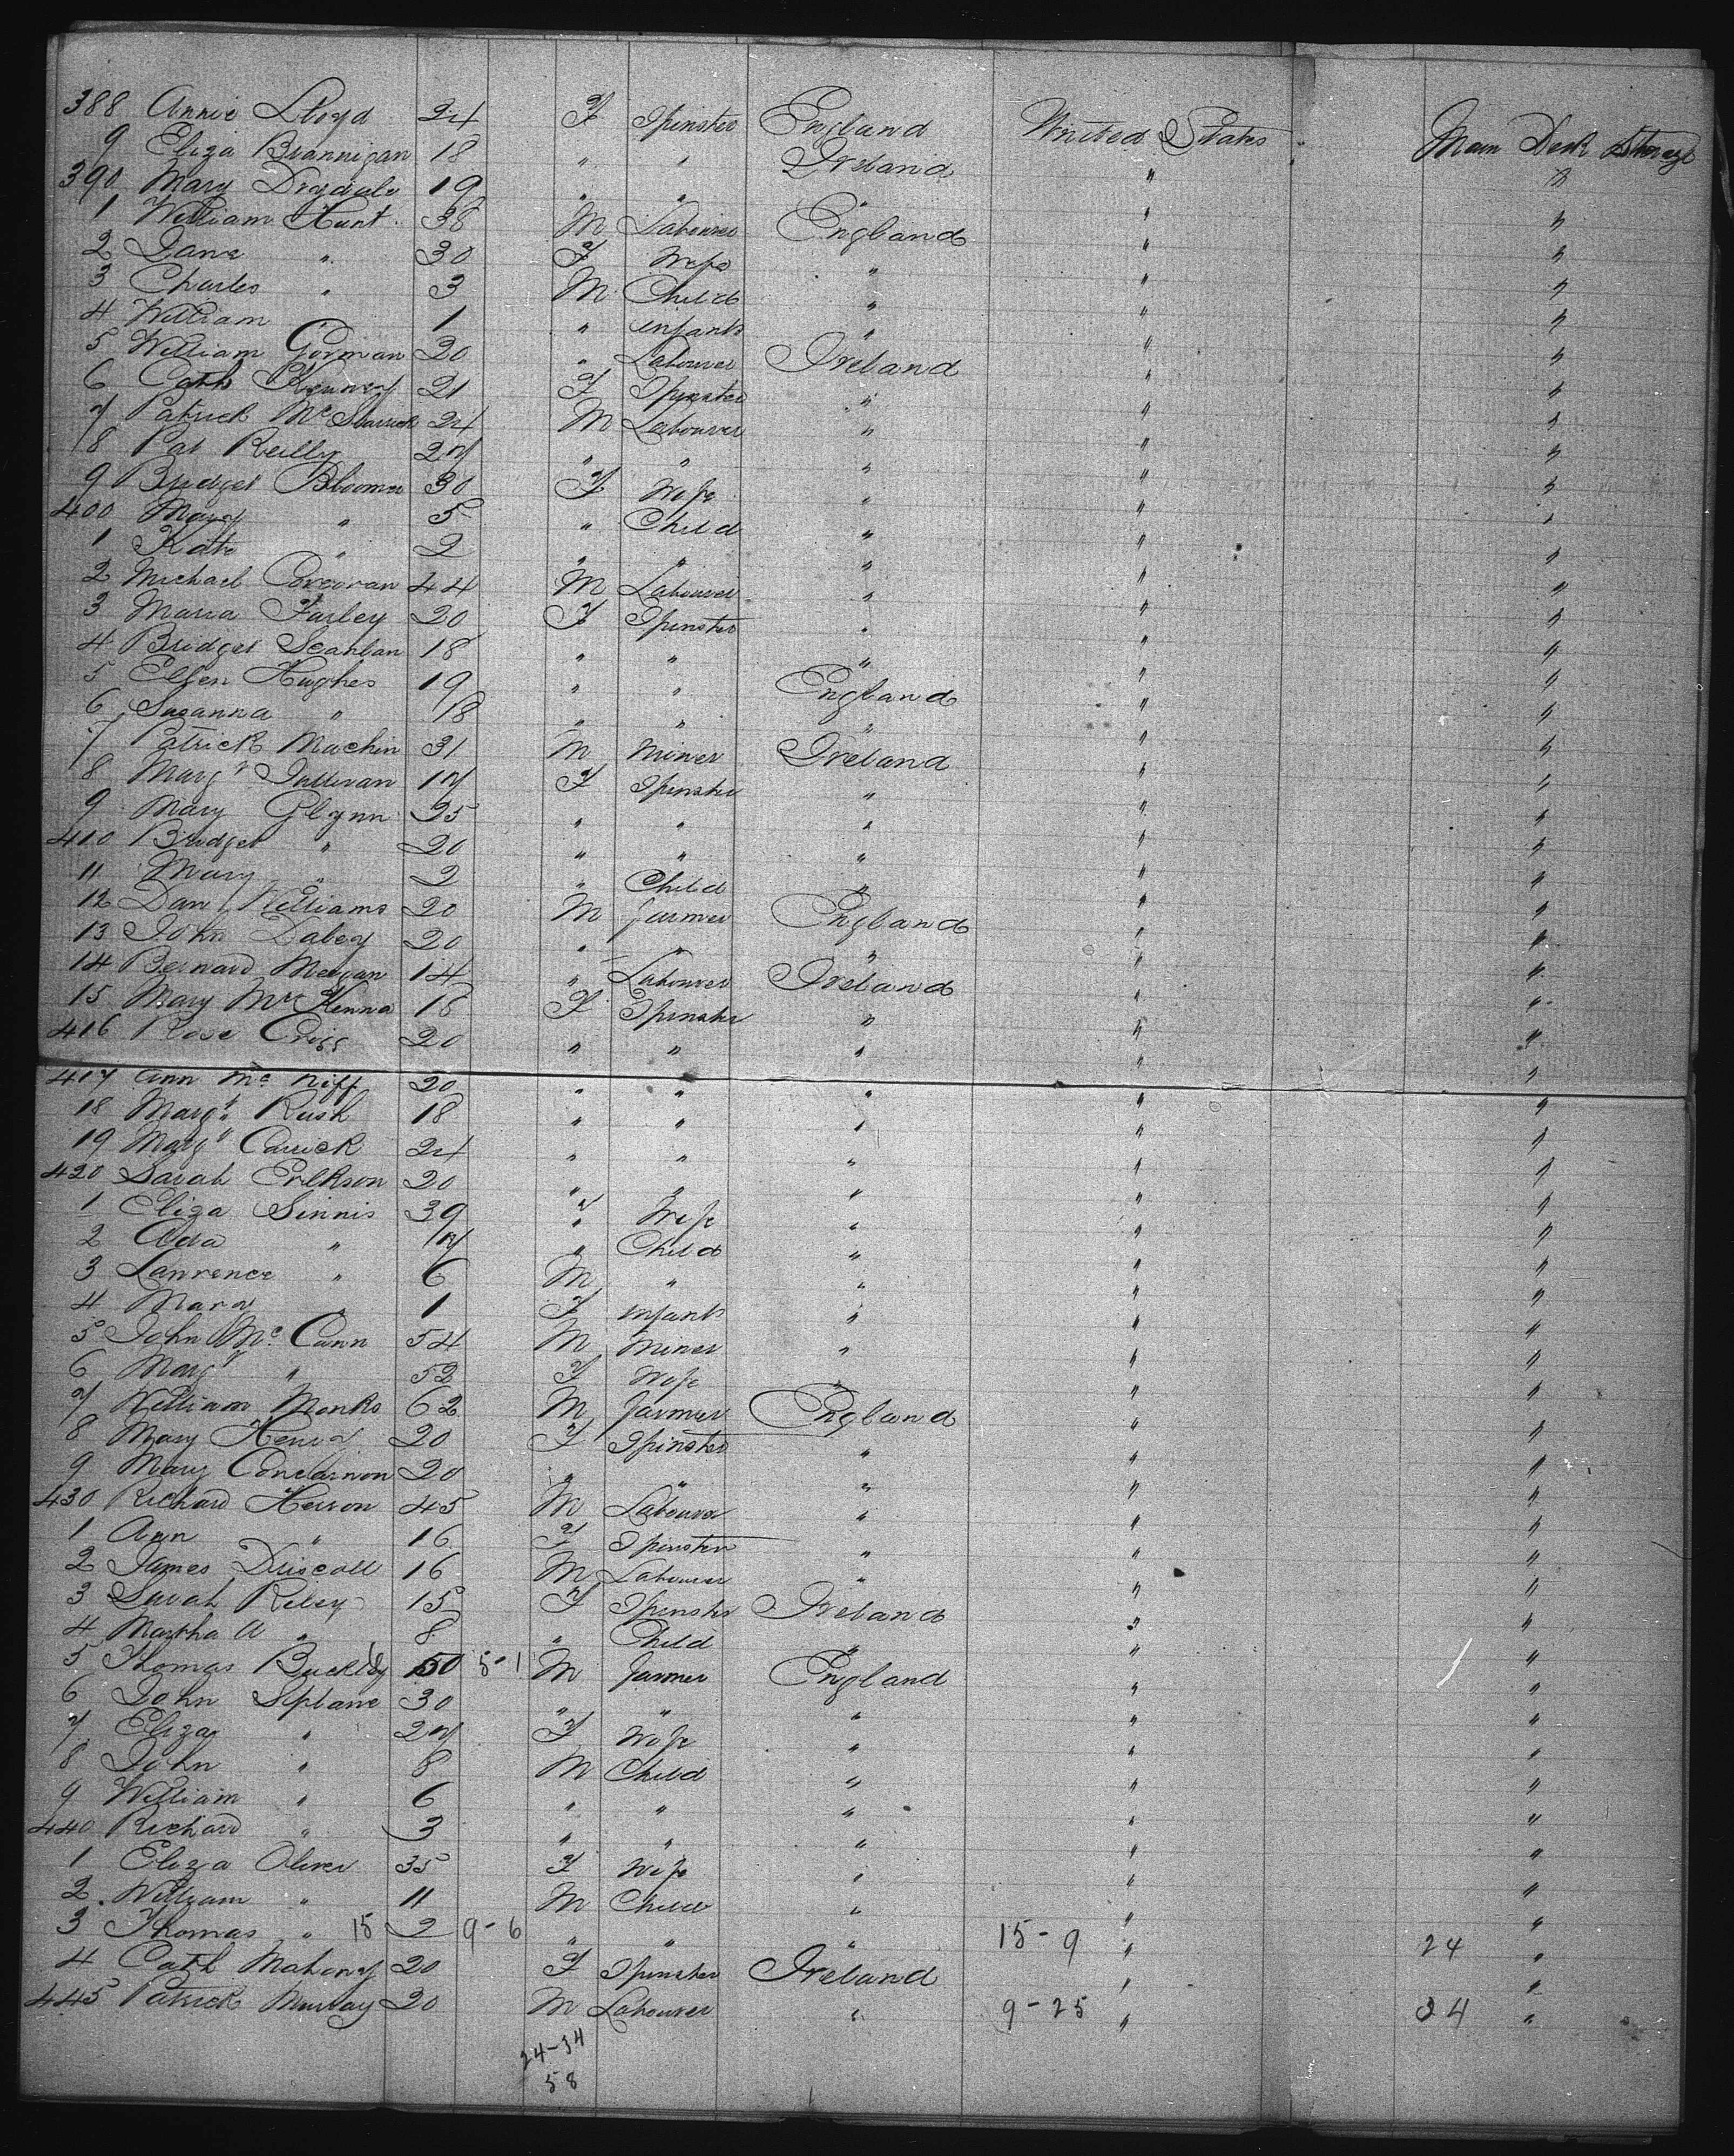 388 Annie Lloyd 24 F Spinster England United States Main Deck Steerage
9 Eliza Brannigan 18 " " Ireland " "
390 Mary Drydale 19 " " " " "
1 William Hunt 38 M Labourer England " "
2 Jane " 30 F Wife " " "
3 Charles " 3 M Child " " "
4 William " 1 " infant " " "
5 William Gorman 20 " Labourer Ireland " "
6 Cath Kenney 21 F Spinster " " "
7 Patrick 24 M Labourer " " "
8 Pat Reilly 27 " " " " "
9 Bridget Bloomer 30 F Wife " " "
400 Mary " 5 " Child " " "
1 Kate " 2 " " " " "
2 Michael Corcoran 44 M Labourer " " "
3 Maria Farley 20 F Spinster " " "
4 Bridget Scanlan 18 " " " " "
5 Ellen Hughes 19 " " England " "
6 Susanna " 18 " " " " "
7 Patrick Machin 31 M Miner Ireland " "
8 Margt Sullivan 17 F Spinster " " "
9 Mary Glynn 25 " " " " "
410 Bridget " 20 " " " " "
11 Mary " 2 " Child " " "
12 Dan Williams 20 M farmer England " "
13 John 20 " " " " "
14 Bernard 14 " Labourer Ireland " "
15 Mary McKenna 18 F Spinster " " "
416 Rose 20 " " " " "
417 Ann Mc Niff 20 " " " " "
18 Margt Rush 18 " " " " "
19 Margt Carrick 24 " " " " "
420 Sarah 20 " " " " "
1 Eliza Sinnis 39 " Wife " " "
2 Ada " " Child " " "
3 Lawrence " 6 M " " " "
4 Mary " 1 F infant " " "
5 John Mc Cann 54 M Miner " " "
6 Margt " 52 F Wife " " "
7 William Monks 62 M farmer England " "
8 Mary Henry 20 F Spinster " " "
9 Mary Concannon 20 " " " " "
430 Richard Herron 45 M Labourer " " "
1 Ann " 16 F Spinster " " "
2 James Driscoll 16 M Labourer " " "
3 Sarah Riley 15 F Spinster Ireland " "
4 Martha A " 8 " Child " " "
5 Thomas Buckley 50 5-1 M farmer England " "
6 John Splane 30 " " " " "
7 Eliza " 27 F Wife " " "
8 John " 8 M Child " " "
9 William " 6 " " " " "
440 Richard " 3 " " " " "
1 Eliza Oliver 35 F Wife " " "
2 William " 11 M Child " " "
3 Thomas " 15 2 9-6 " " " 15-9 " 24 "
4 Cath Mahony 20 F Spinster Ireland " "
445 Patrick Murray 20 M Labourer " 9-25 " 34 "
24-34
58